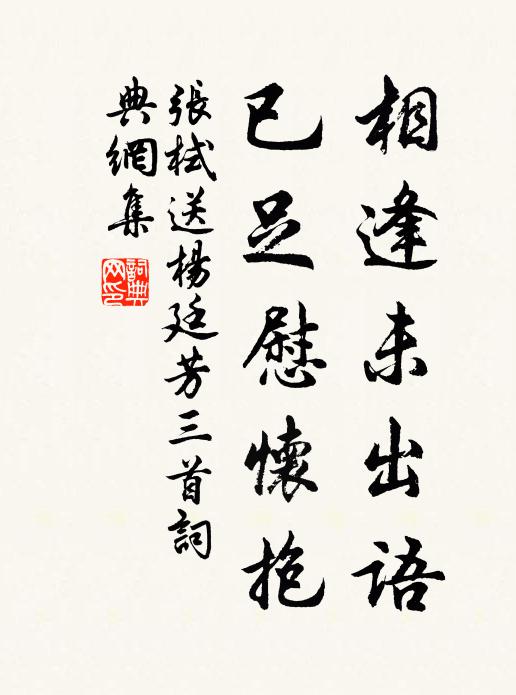 相逢未出語
已足慰懷抱
張栻送楊廷芳三首詞
典網集
詞典
网印